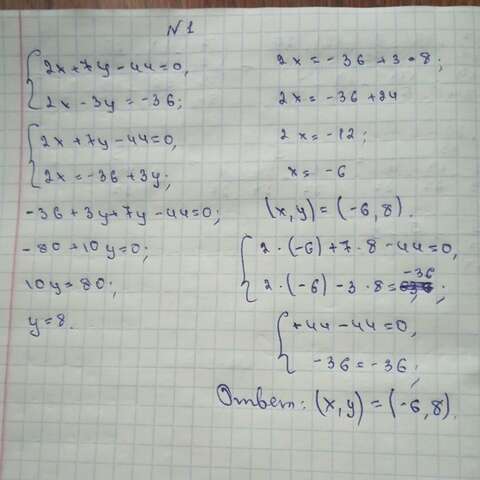 N1
2x+7y-44=0,
2x-3y=-36;
2x+7y-44=0,
2x=-36+3y;
-36+3y+7y-44=0;
-80+10y=0;
10y=80;
y=8.
2x=-36+3·8;
2x=-36+24
2x=-12;
x=-6
(x,y)=(-6,8).
2·(-6)+7·8-44=0,
2·(-6)-3·8=-36;
+44-44=0,
-36=-36;
Ответ: (x,y)=(-6,8).